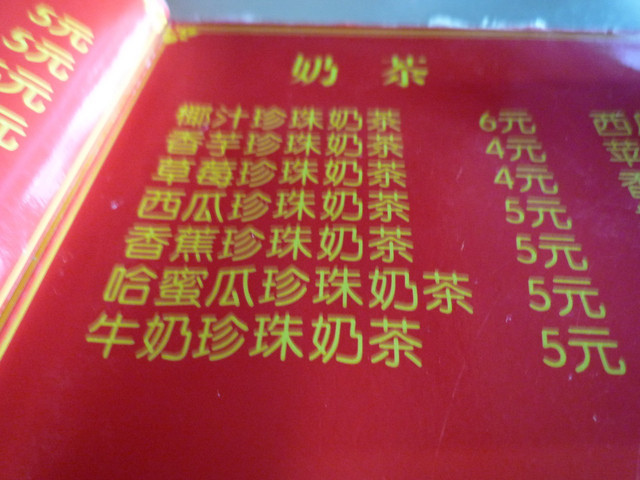 5元
5元
元
元
奶茶
椰汁珍珠奶茶 6元 西
香芋珍珠奶茶 4元 苹
草莓珍珠奶茶 4元 香
西瓜珍珠奶茶 5元
香蕉珍珠奶茶 5元
哈蜜瓜珍珠奶茶 5元
牛奶珍珠奶茶 5元